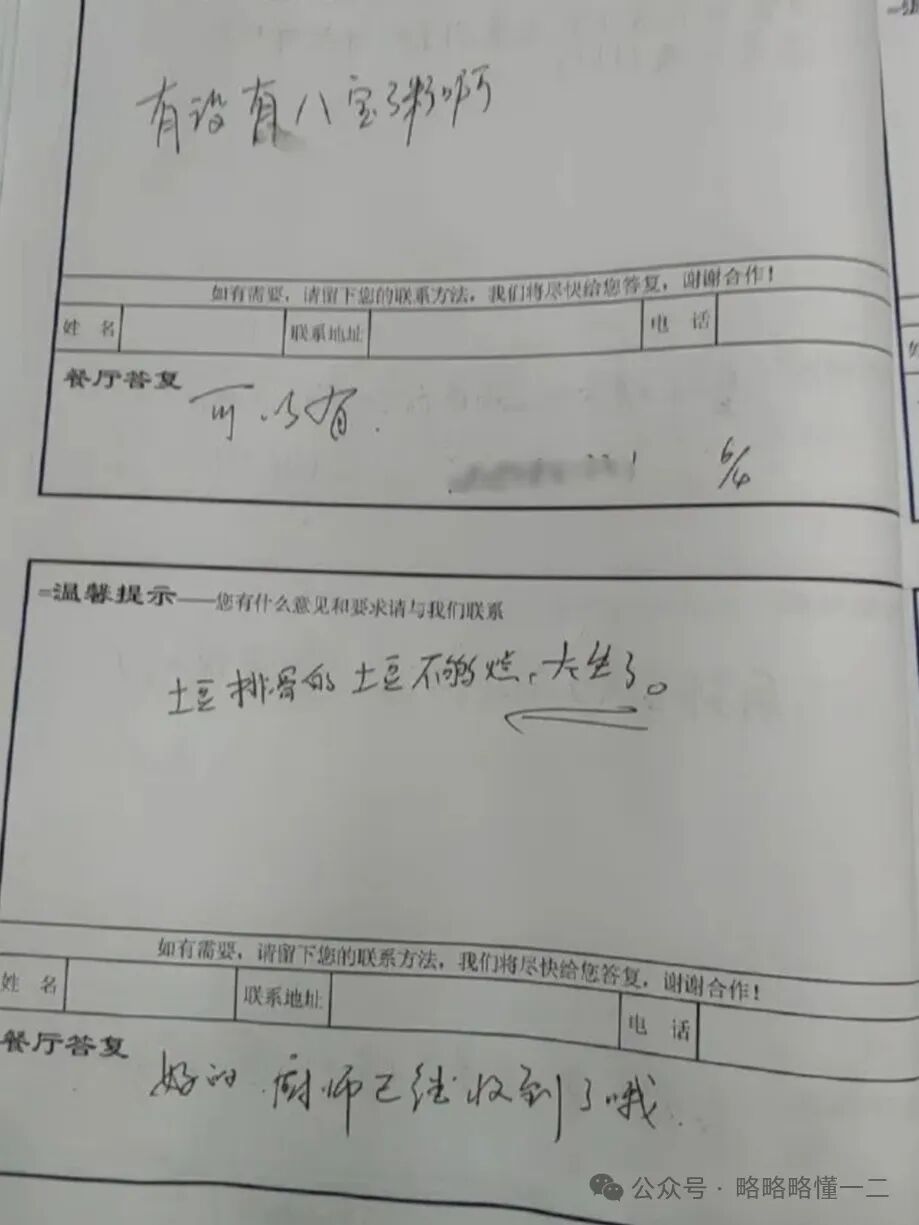 有没有八宝粥啊
如有需要，请留下您的联系方法，我们将尽快给您答复，谢谢合作！
姓 名 联系地址 电 话
餐厅答复
可以有.
6/4
温馨提示——您有什么意见和要求请与我们联系
土豆排骨的土豆不够烂，太生了。
如有需要，请留下您的联系方法，我们将尽快给您答复，谢谢合作！
姓 名 联系地址 电 话
餐厅答复
好的 厨师已经收到了哦
公众号 · 略略略懂一二